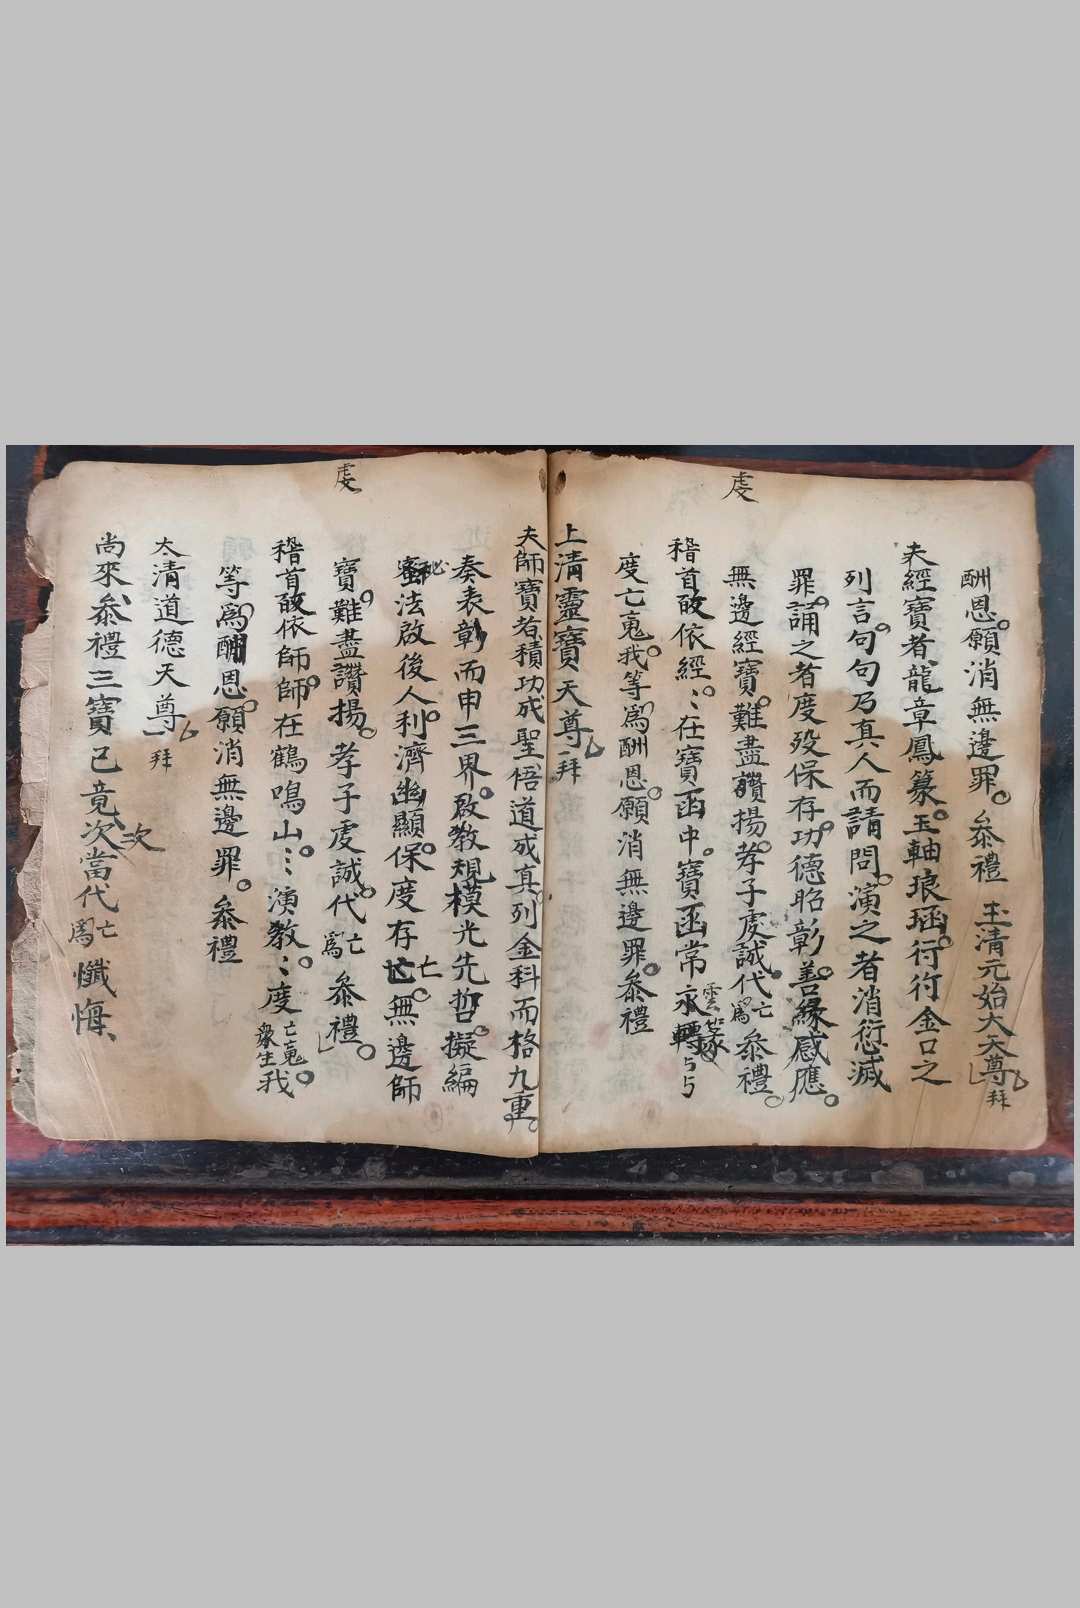 虔
酬恩願消無邊罪叅禮 玉清元始大天尊 拜
夫經寶者龍章鳳篆玉軸琅函行行金口之
列言句句乃真人而請問演之者消愆滅
罪誦之者度歿保存功德昭彰善緣感應
無邊經寶難盡讚揚孝子虔誠代亡為叅禮
稽首皈依經〻在寶函中寶函常永轉
度亡䰟我等爲酬恩願消無邊罪叅禮
上清靈寶天尊 拜
虔
夫師寶者積功成聖悟道成真列金科而格九重
奏表彰而申三界啟教規模光先哲擬編
秘法啟後人利濟幽顯保度存亡無邊師
寶難盡讚揚孝子虔誠代亡爲叅禮
稽首皈依師師在鶴鳴山〻演教〻度亡䰟衆生我
等爲酬恩願消無邊罪叅禮
太清道德天尊 一拜
尚來叅禮三寶已竟次當代亡爲懺悔
次